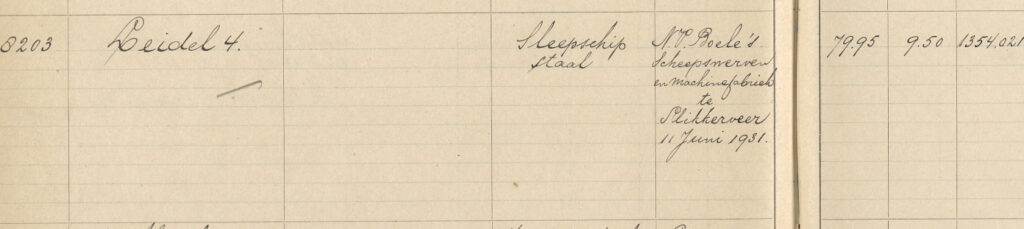 8203 Leidel 4. Sleepschip N.V. Boele's 79.95 9.50 1354.021
staal Scheepswerven
en Machinefabriek
te
Slikkerveer
11 Juni 1931.